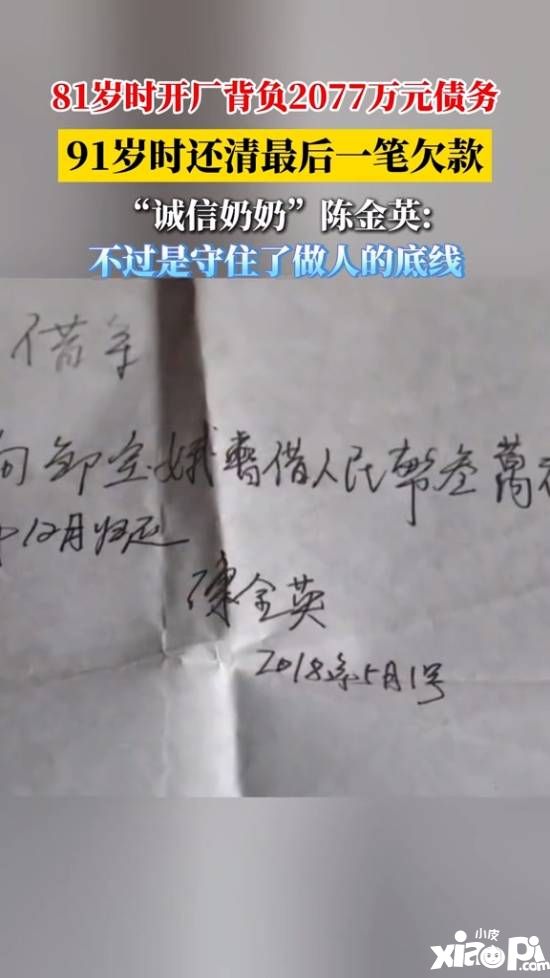 81岁时开厂背负2077万元债务
91岁时还清最后一笔欠款
“诚信奶奶”陈金英:
不过是守住了做人的底线
借条
向邹宝娥暂借人民幣叁萬
12月归还
陳金英
2018年5月1号
小皮
xiaopi.com